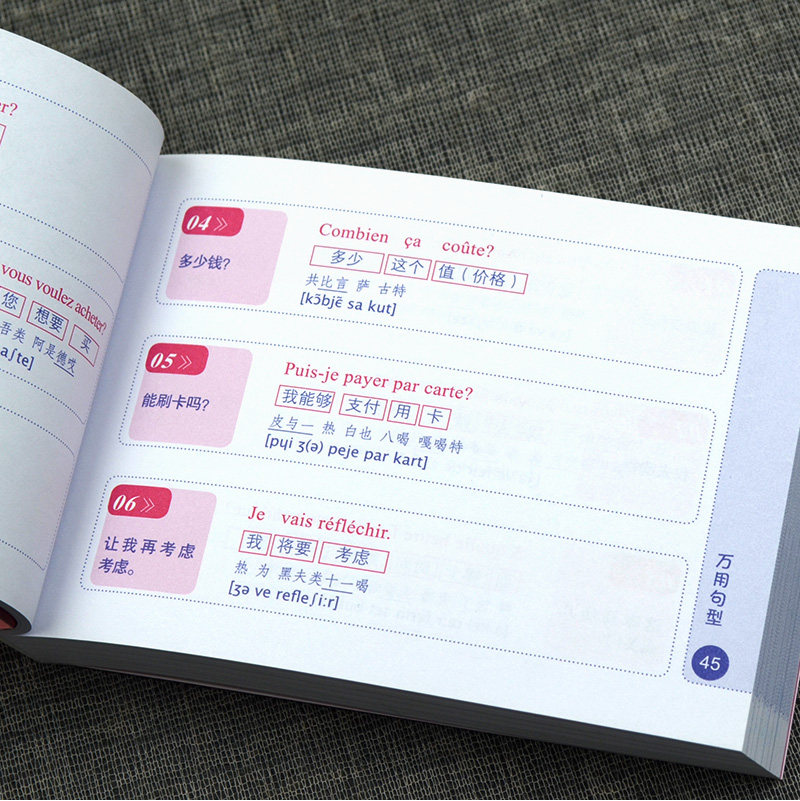 er?
vous voulez acheter?
您 想要 买
吾类 阿是德哎
a ʃte]
04
多少钱?
Combien ça coûte?
多少 这个 值（价格）
共比言 萨 古特
[kɔ̃bjɛ̃ sa kut]
05
能刷卡吗?
Puis-je payer par carte?
我能够 支付 用 卡
皮与一 热 白也 八喝 嘎喝特
[pɥi ʒ(ə) peje par kart]
06
让我再考虑
考虑。
Je vais réfléchir.
我 将要 考虑
热 为 黑夫类十一喝
[ʒə ve refleʃi:r]
万用句型
45